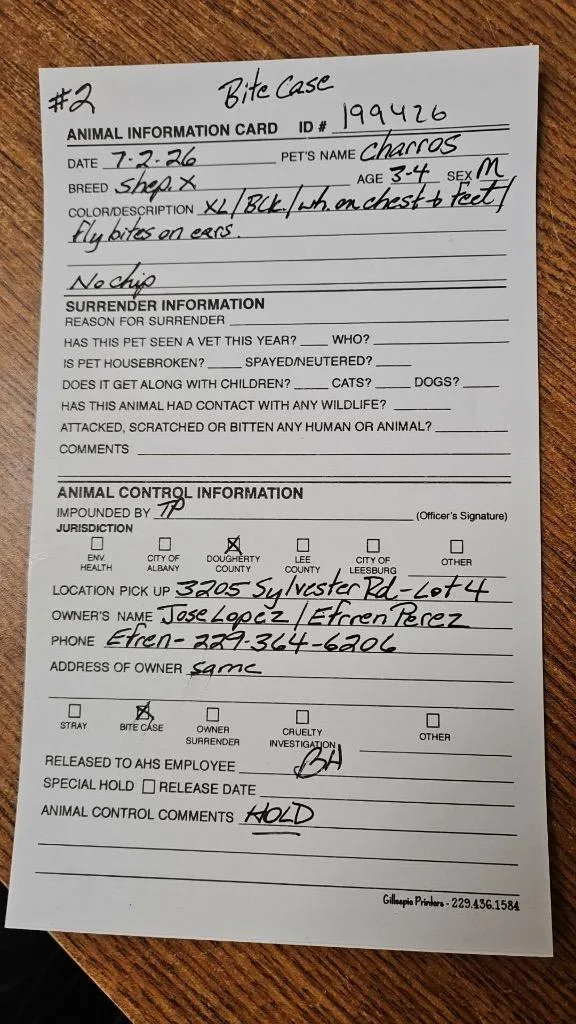 #2
Bite Case
ANIMAL INFORMATION CARD ID # 199426
DATE 7-2-26 PET'S NAME Charros
BREED Shep. X AGE 3-4 SEX M
COLOR/DESCRIPTION XL/Blk./wh. on chest & feet/
fly bites on ears.
No chip
SURRENDER INFORMATION
REASON FOR SURRENDER
HAS THIS PET SEEN A VET THIS YEAR? WHO?
IS PET HOUSEBROKEN? SPAYED/NEUTERED?
DOES IT GET ALONG WITH CHILDREN? CATS? DOGS?
HAS THIS ANIMAL HAD CONTACT WITH ANY WILDLIFE?
ATTACKED, SCRATCHED OR BITTEN ANY HUMAN OR ANIMAL?
COMMENTS
ANIMAL CONTROL INFORMATION
IMPOUNDED BY TP (Officer's Signature)
JURISDICTION
ENV. HEALTH CITY OF ALBANY DOUGHERTY COUNTY LEE COUNTY CITY OF LEESBURG OTHER
LOCATION PICK UP 3205 Sylvester Rd.-Lot 4
OWNER'S NAME Jose Lopez / Efrren Perez
PHONE Efren- 229-364-6206
ADDRESS OF OWNER same
STRAY BITE CASE OWNER SURRENDER CRUELTY INVESTIGATION OTHER
RELEASED TO AHS EMPLOYEE BH
SPECIAL HOLD RELEASE DATE
ANIMAL CONTROL COMMENTS HOLD
Gillespie Printers - 229.436.1584